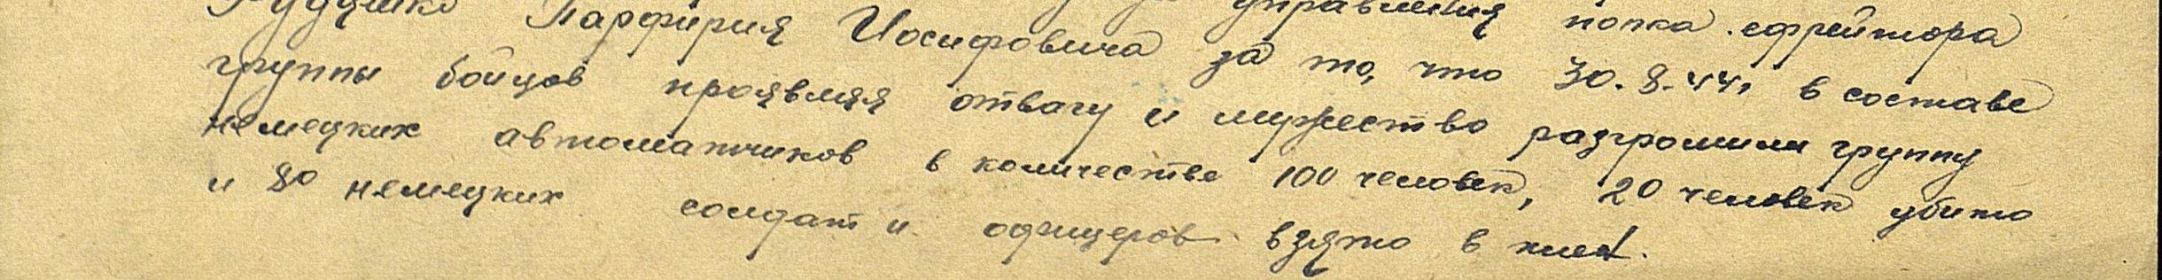 управления полка ефрейтора
Парфирия Иосифовича за то, что 30.8.44, в составе
группы бойцов проявляя отвагу и мужество разгромили группу
немецких автоматчиков в количестве 100 человек, 20 человек убито
и 80 немецких солдат и офицеров взято в плен.